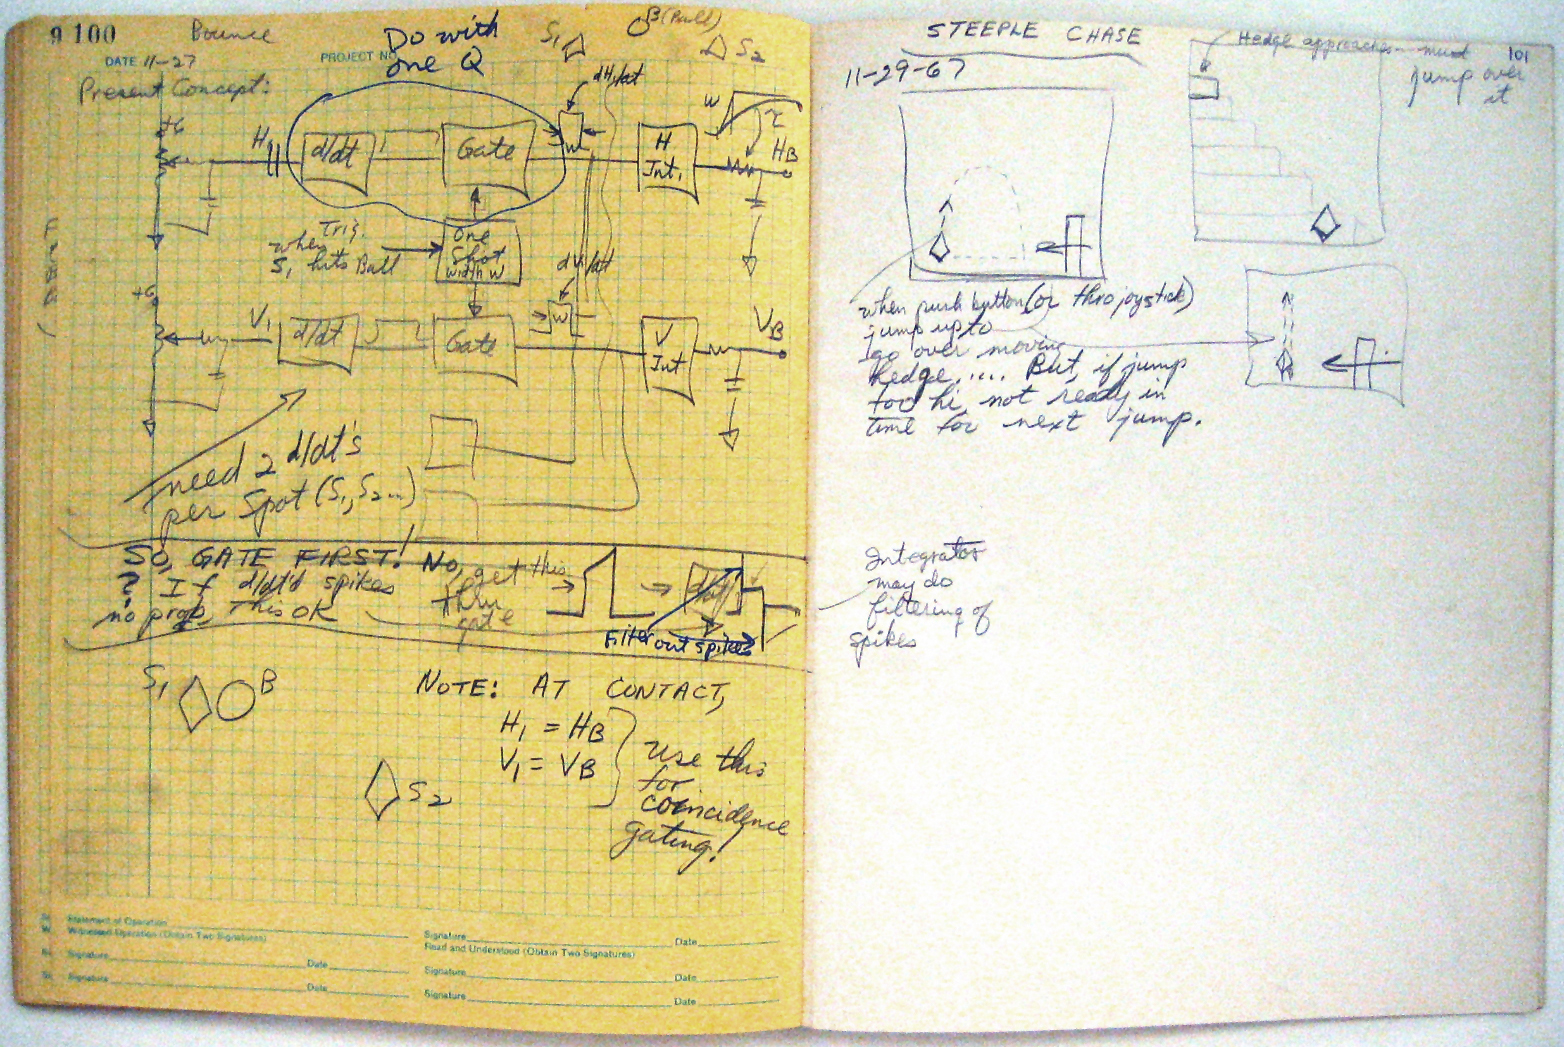 100
Bounce
DATE 11-27
PROJECT NO.
Do with
one Q
S1
B (Ball)
S2
Present Concept:
+6
H1
d/dt
Gate
dH1/dt
w
H
Int.
w
τ
HB
Trig.
when
S1 hits Ball
One
Shot
width w
dV1/dt
w
+6
V1
d/dt
Gate
V
Int
VB
need 2 d/dt's
per Spot (S1, S2...)
So, GATE FIRST! No, get this
thru
gate
?
If d/dt'd spikes
no prob, this OK
d/dt
Filter out spikes
S1
B
S2
NOTE: AT CONTACT,
H1 = HB
V1 = VB
use this
for
coincidence
gating!
Statement of Operation
Witnessed Operation (Obtain Two Signatures)
Signature Date
Signature Date
Signature Date
Read and Understood (Obtain Two Signatures)
Signature Date
Signature Date
STEEPLE CHASE
101
11-29-67
Hedge approaches - must
jump over
it
when push button (or thro joystick)
jump up to
go over moving
hedge..... But, if jump
too hi, not ready in
time for next jump.
Integrator
may do
filtering of
spikes